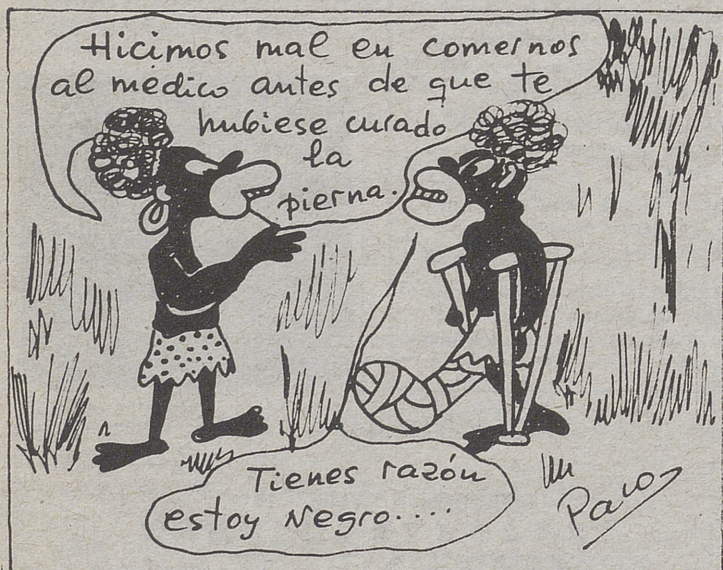 Hicimos mal en comernos
al medico antes de que te
hubiese curado
la
pierna.
Tienes razón
estoy Negro....
Paco